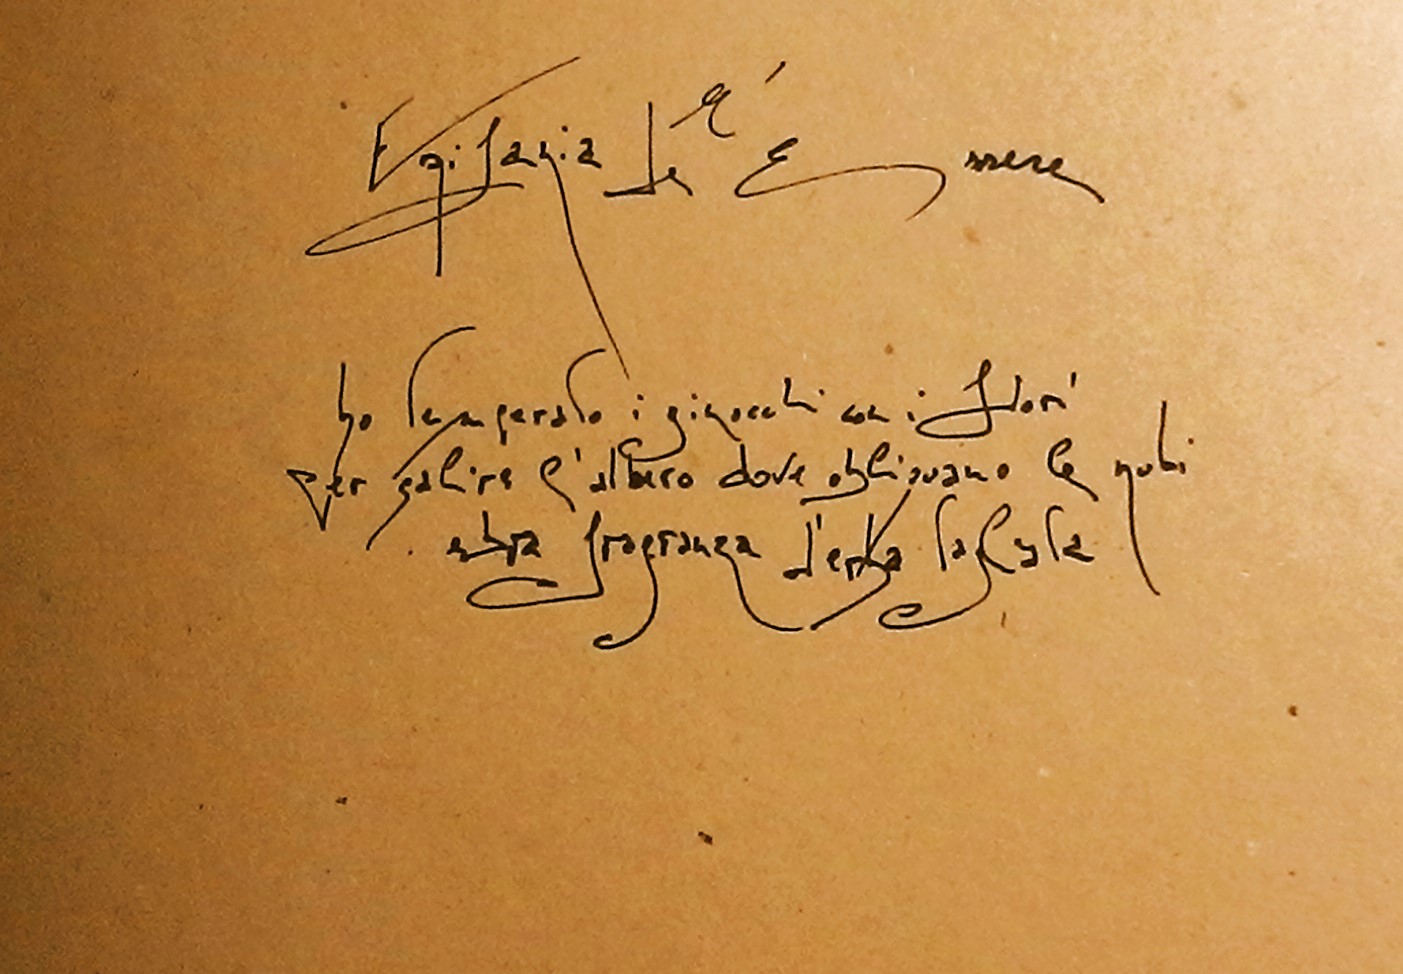 Epifania dell'Essere
ho temperato i ginocchi con i fiori
per salire l'albero dove obliavano le nubi
fragranza d'erba tagliata